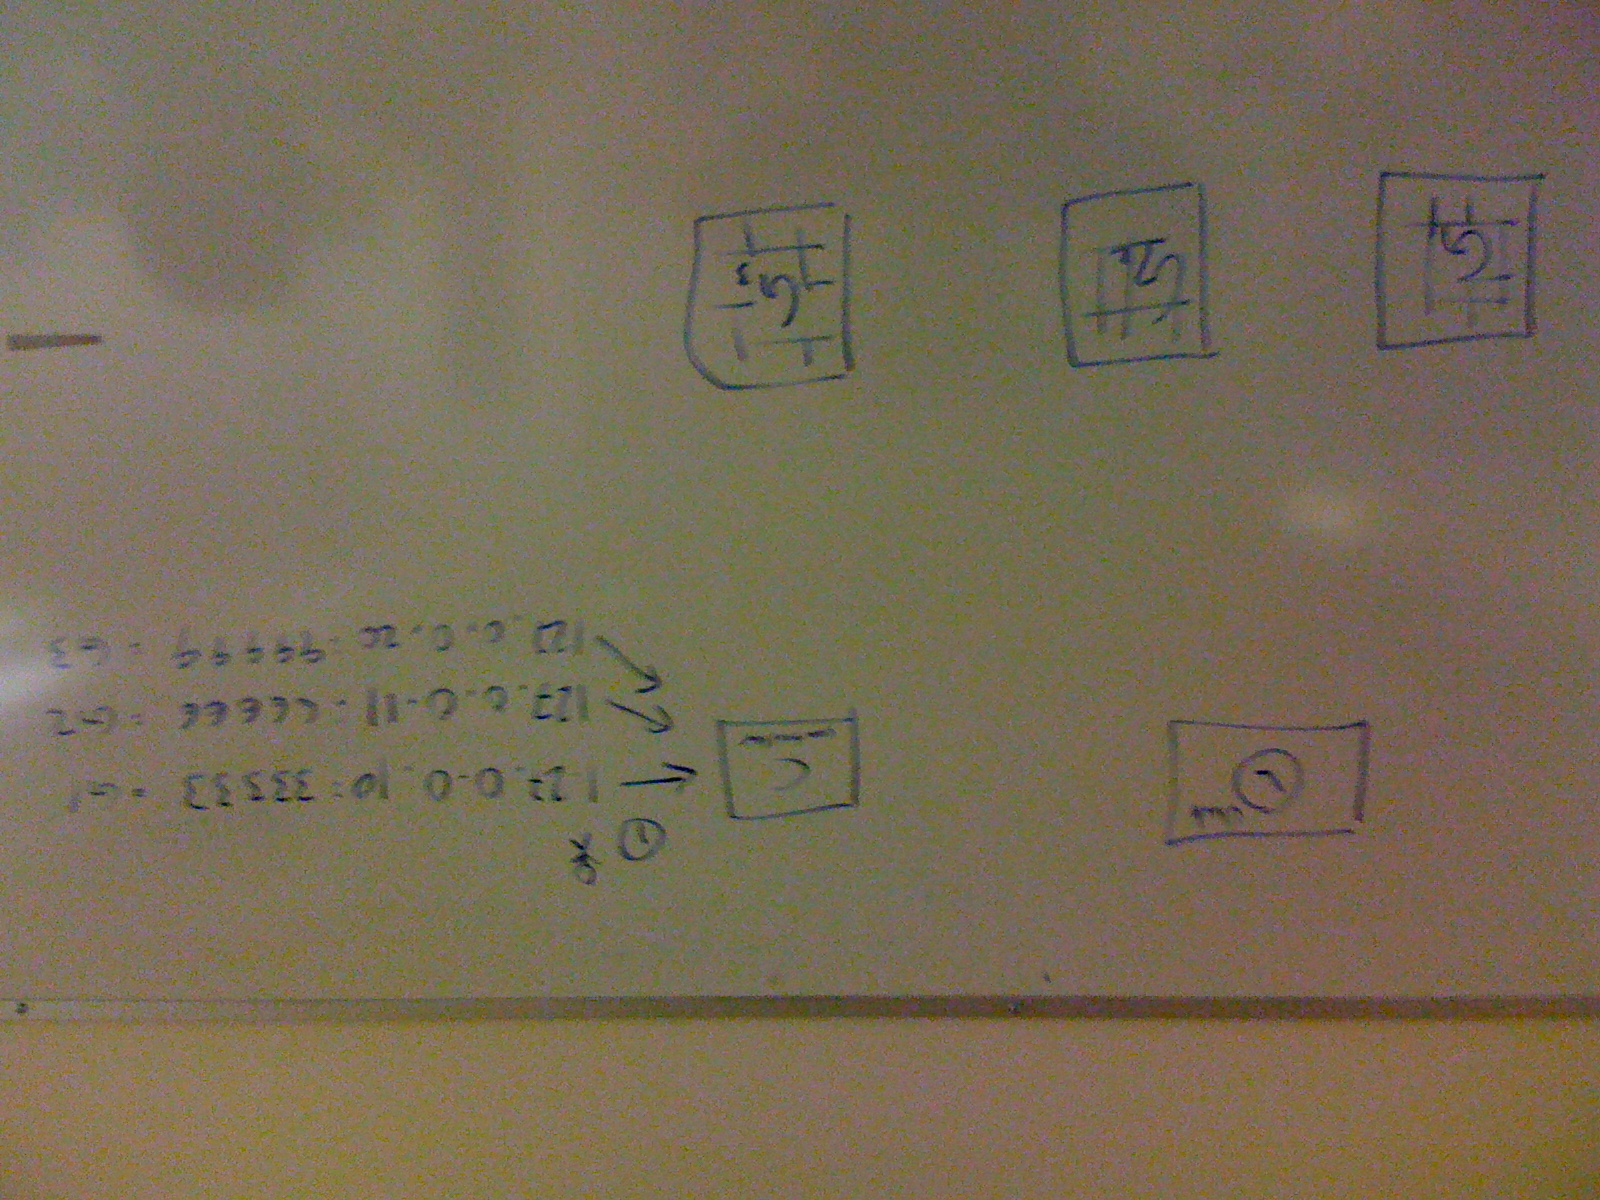 L
C
1
127.0.0.10:33333 = G1
127.0.0.11:66666 = G2
127.0.0.20:99999 = G3
G1
G2
G3